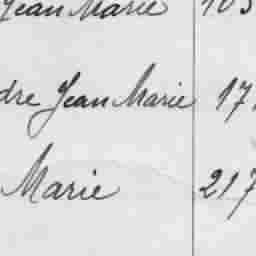 Jean Marie 103
dre Jean Marie 17
Marie 217